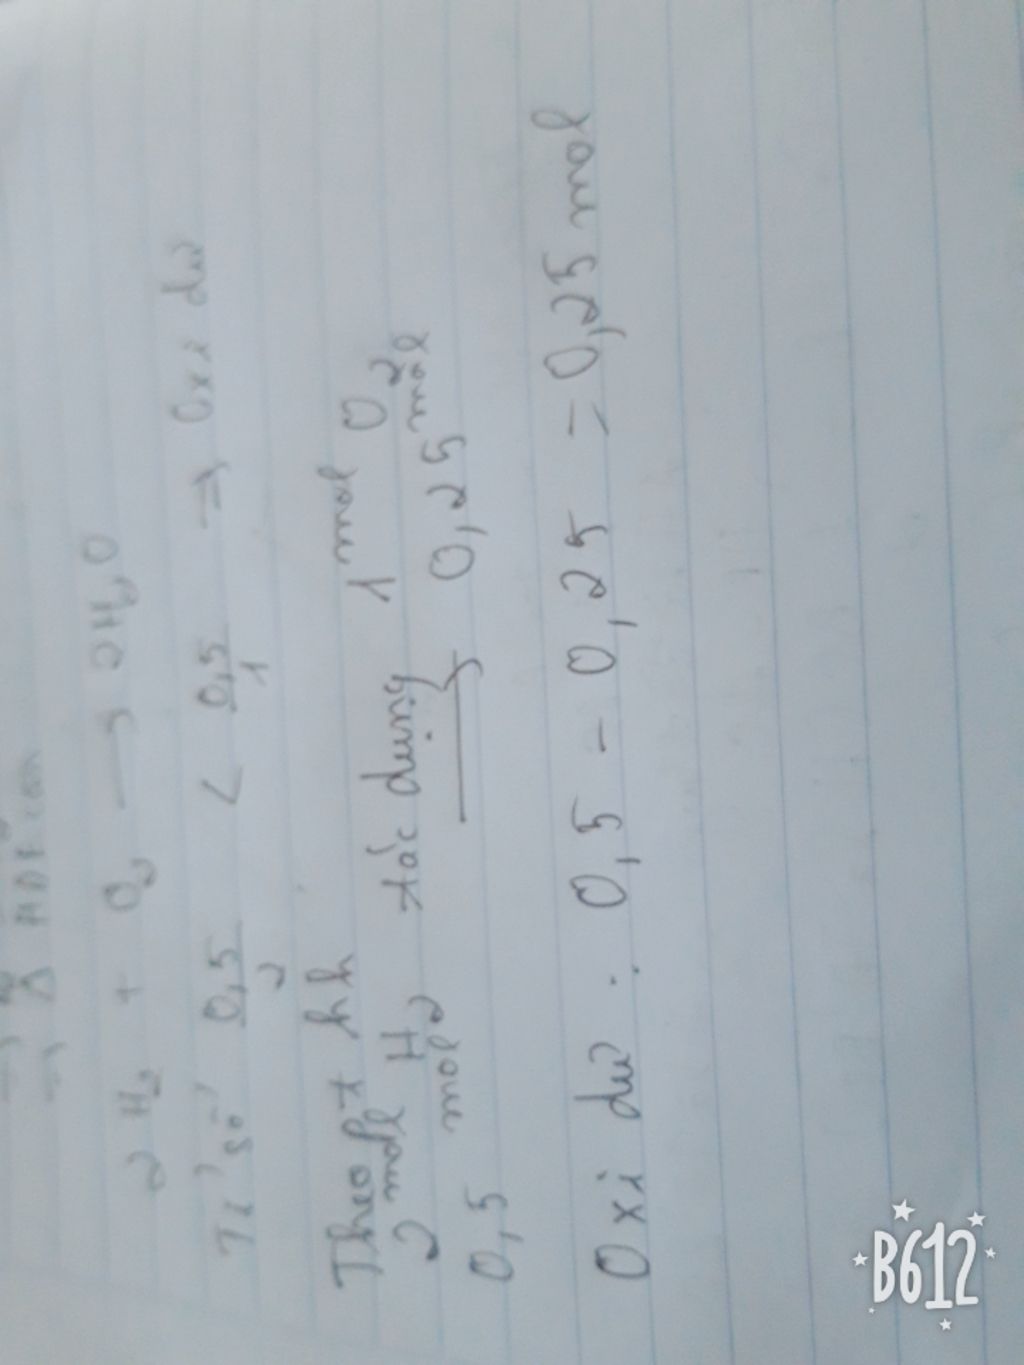 2H2 + O2 → 2H2O
Tỉ số 0,5/2 < 0,5/1 ⇒ Oxi dư
Theo pt hh
2 mol H2 tác dụng 1 mol O2
0,5 mol → 0,25 mol
Oxi dư : 0,5 - 0,25 = 0,25 mol
B612